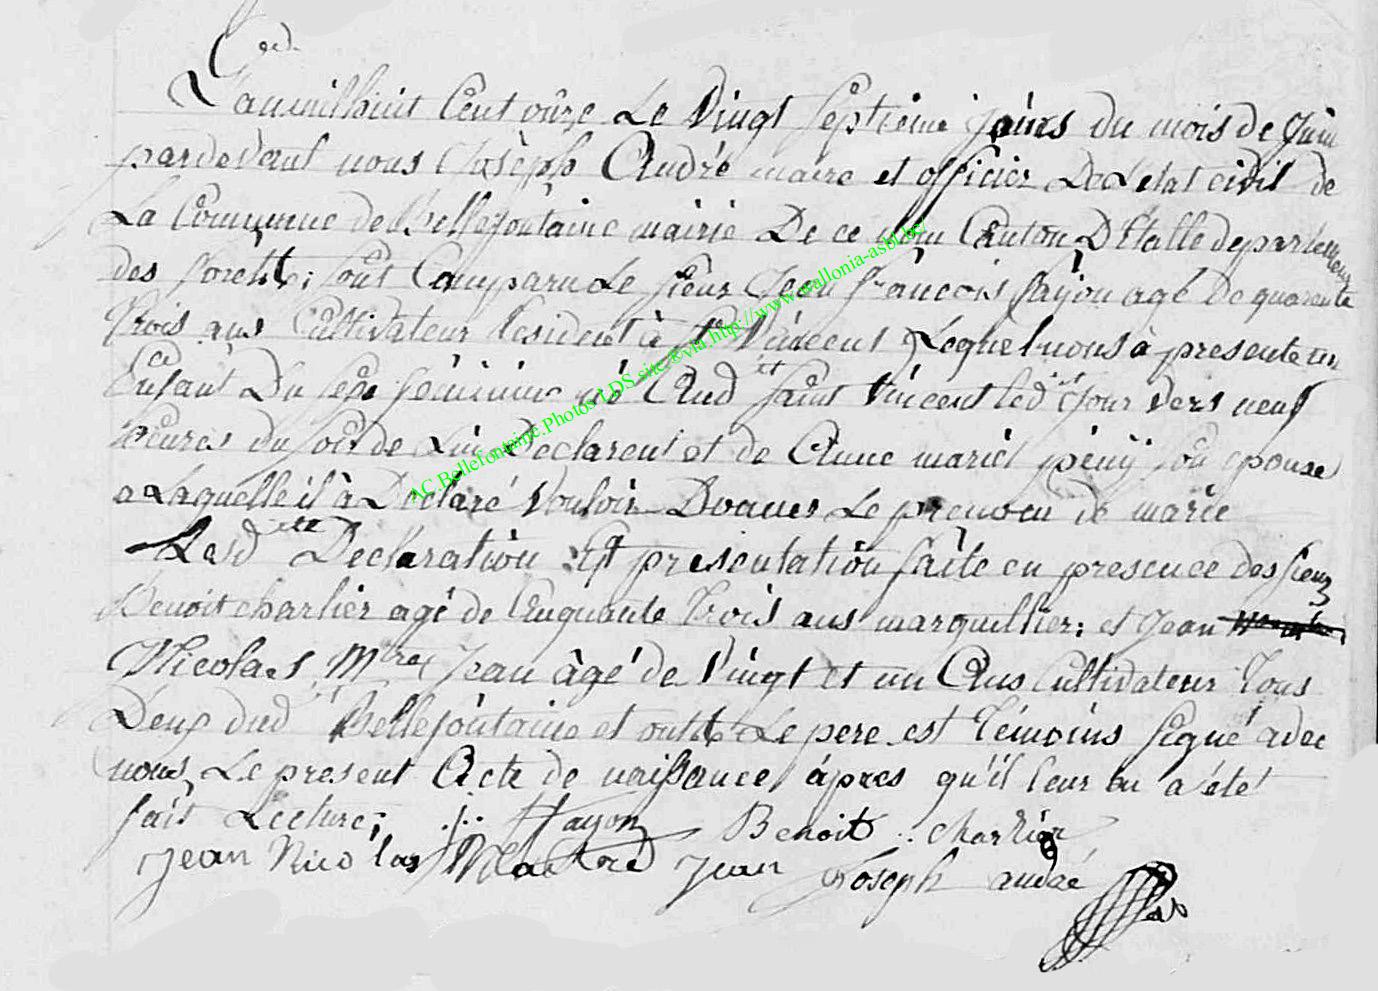 L'an mil huit Cent onze Le Vingt Septieme jours du mois de Juin
pardevant nous Joseph André maire et officier De L'etat civil de
La Commune de Bellefontaine mairie De ce nom Canton D'Etalle departement
des forets; sout Comparu Le sieur Jean françois hayon agé De quarante
trois ans Cultivateur resident à St Vincent Lequel nous à presenté un
Enfant Du sexe féminine né Aud it Saint Vincent led it Jour Vers neuf
heures du soir de Lui Declarent et de Anne marie son epouse
a Laquelle il à Déclaré Vouloir Donner Le prenom de marie
Lesd ttes Declaration Et presentation faite en presence des sieurs
Benoit charlier agé de Cinquante trois ans marguillier; et Jean
Nicolas Mtre Jean âgé de Vingt et un Ans Cultivateur Tous
Deux dud Bellefontaine et Le pere est témoins signé avec
nous Le present Acte de naissance après qu'il leur en a été
fait Lecture; j:. Hayon Benoit : charlier
jean Nicolas Maitre jean Joseph andré
AC.Bellefontaine.Photos LDS site ©via http://www.wallonia-asbl.be/